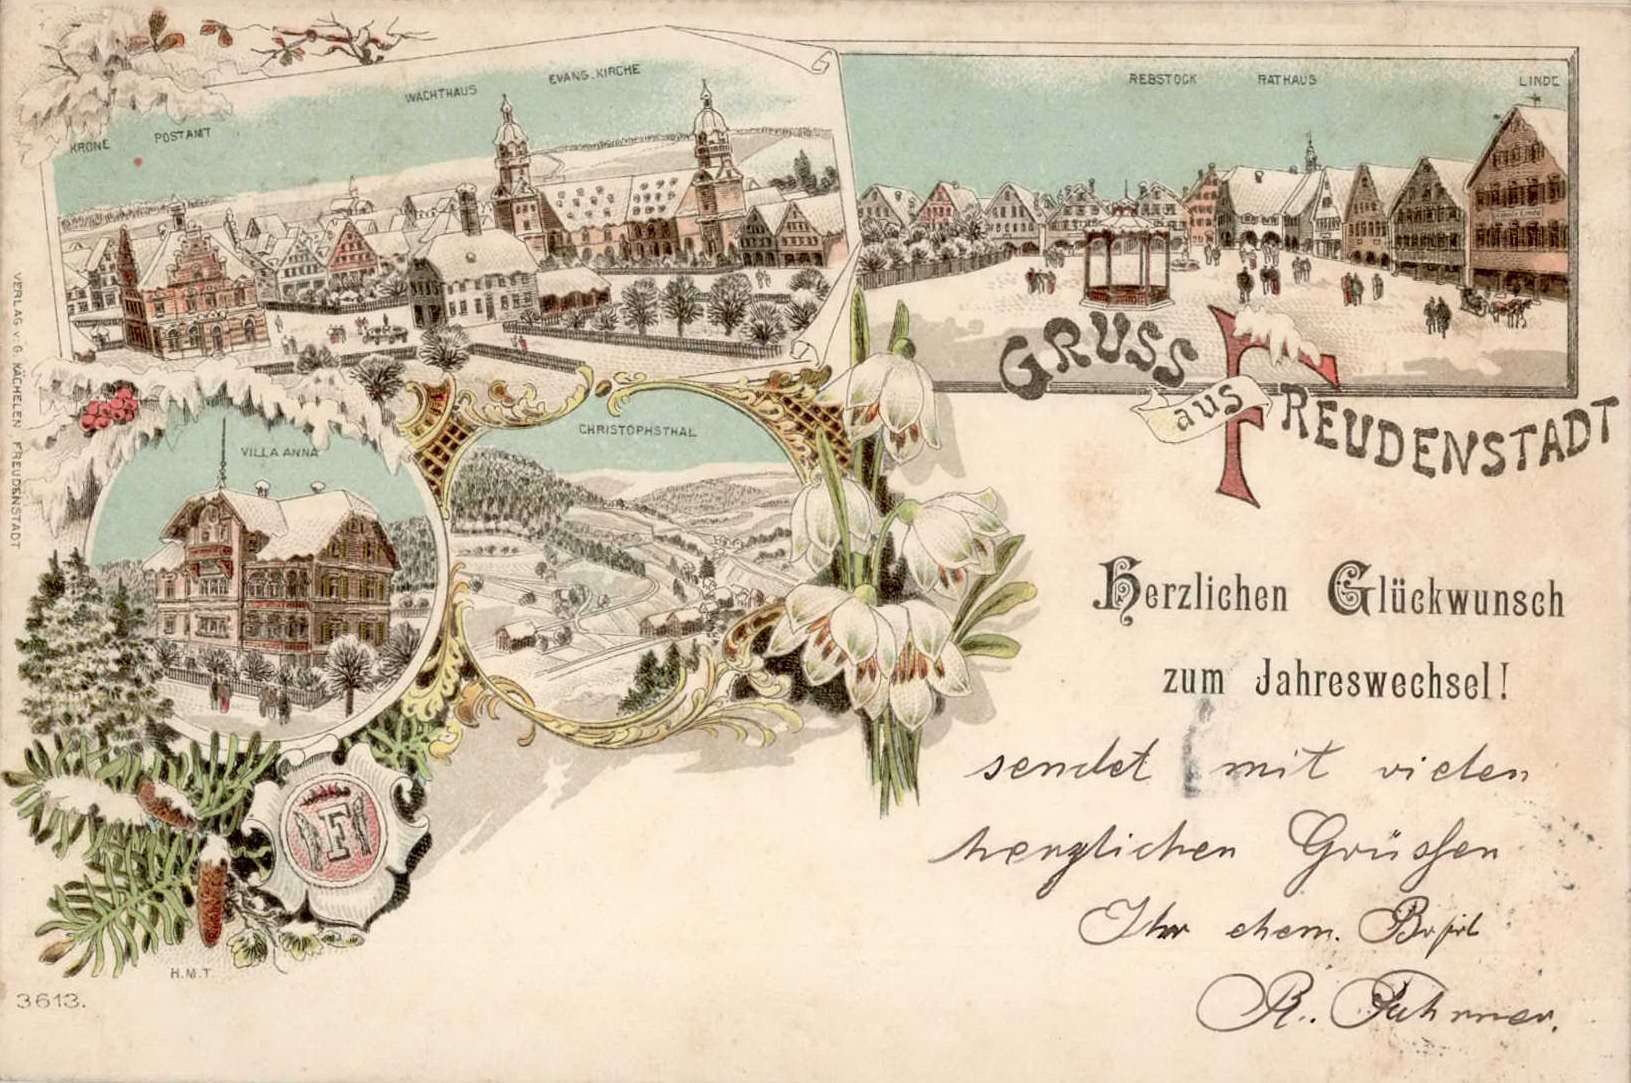 KRONE
POSTAMT
WACHTHAUS
EVANG. KIRCHE
REBSTOCK
RATHAUS
LINDE
GRUSS
aus
FREUDENSTADT
VILLA ANNA
CHRISTOPHSTHAL
VERLAG v. G. KÄCHELEN FREUDENSTADT
Herzlichen Glückwunsch
zum Jahreswechsel!
sendet mit vielen
herzlichen Grüssen
Ihr ehem.
R.
F
H.M.T.
3613.